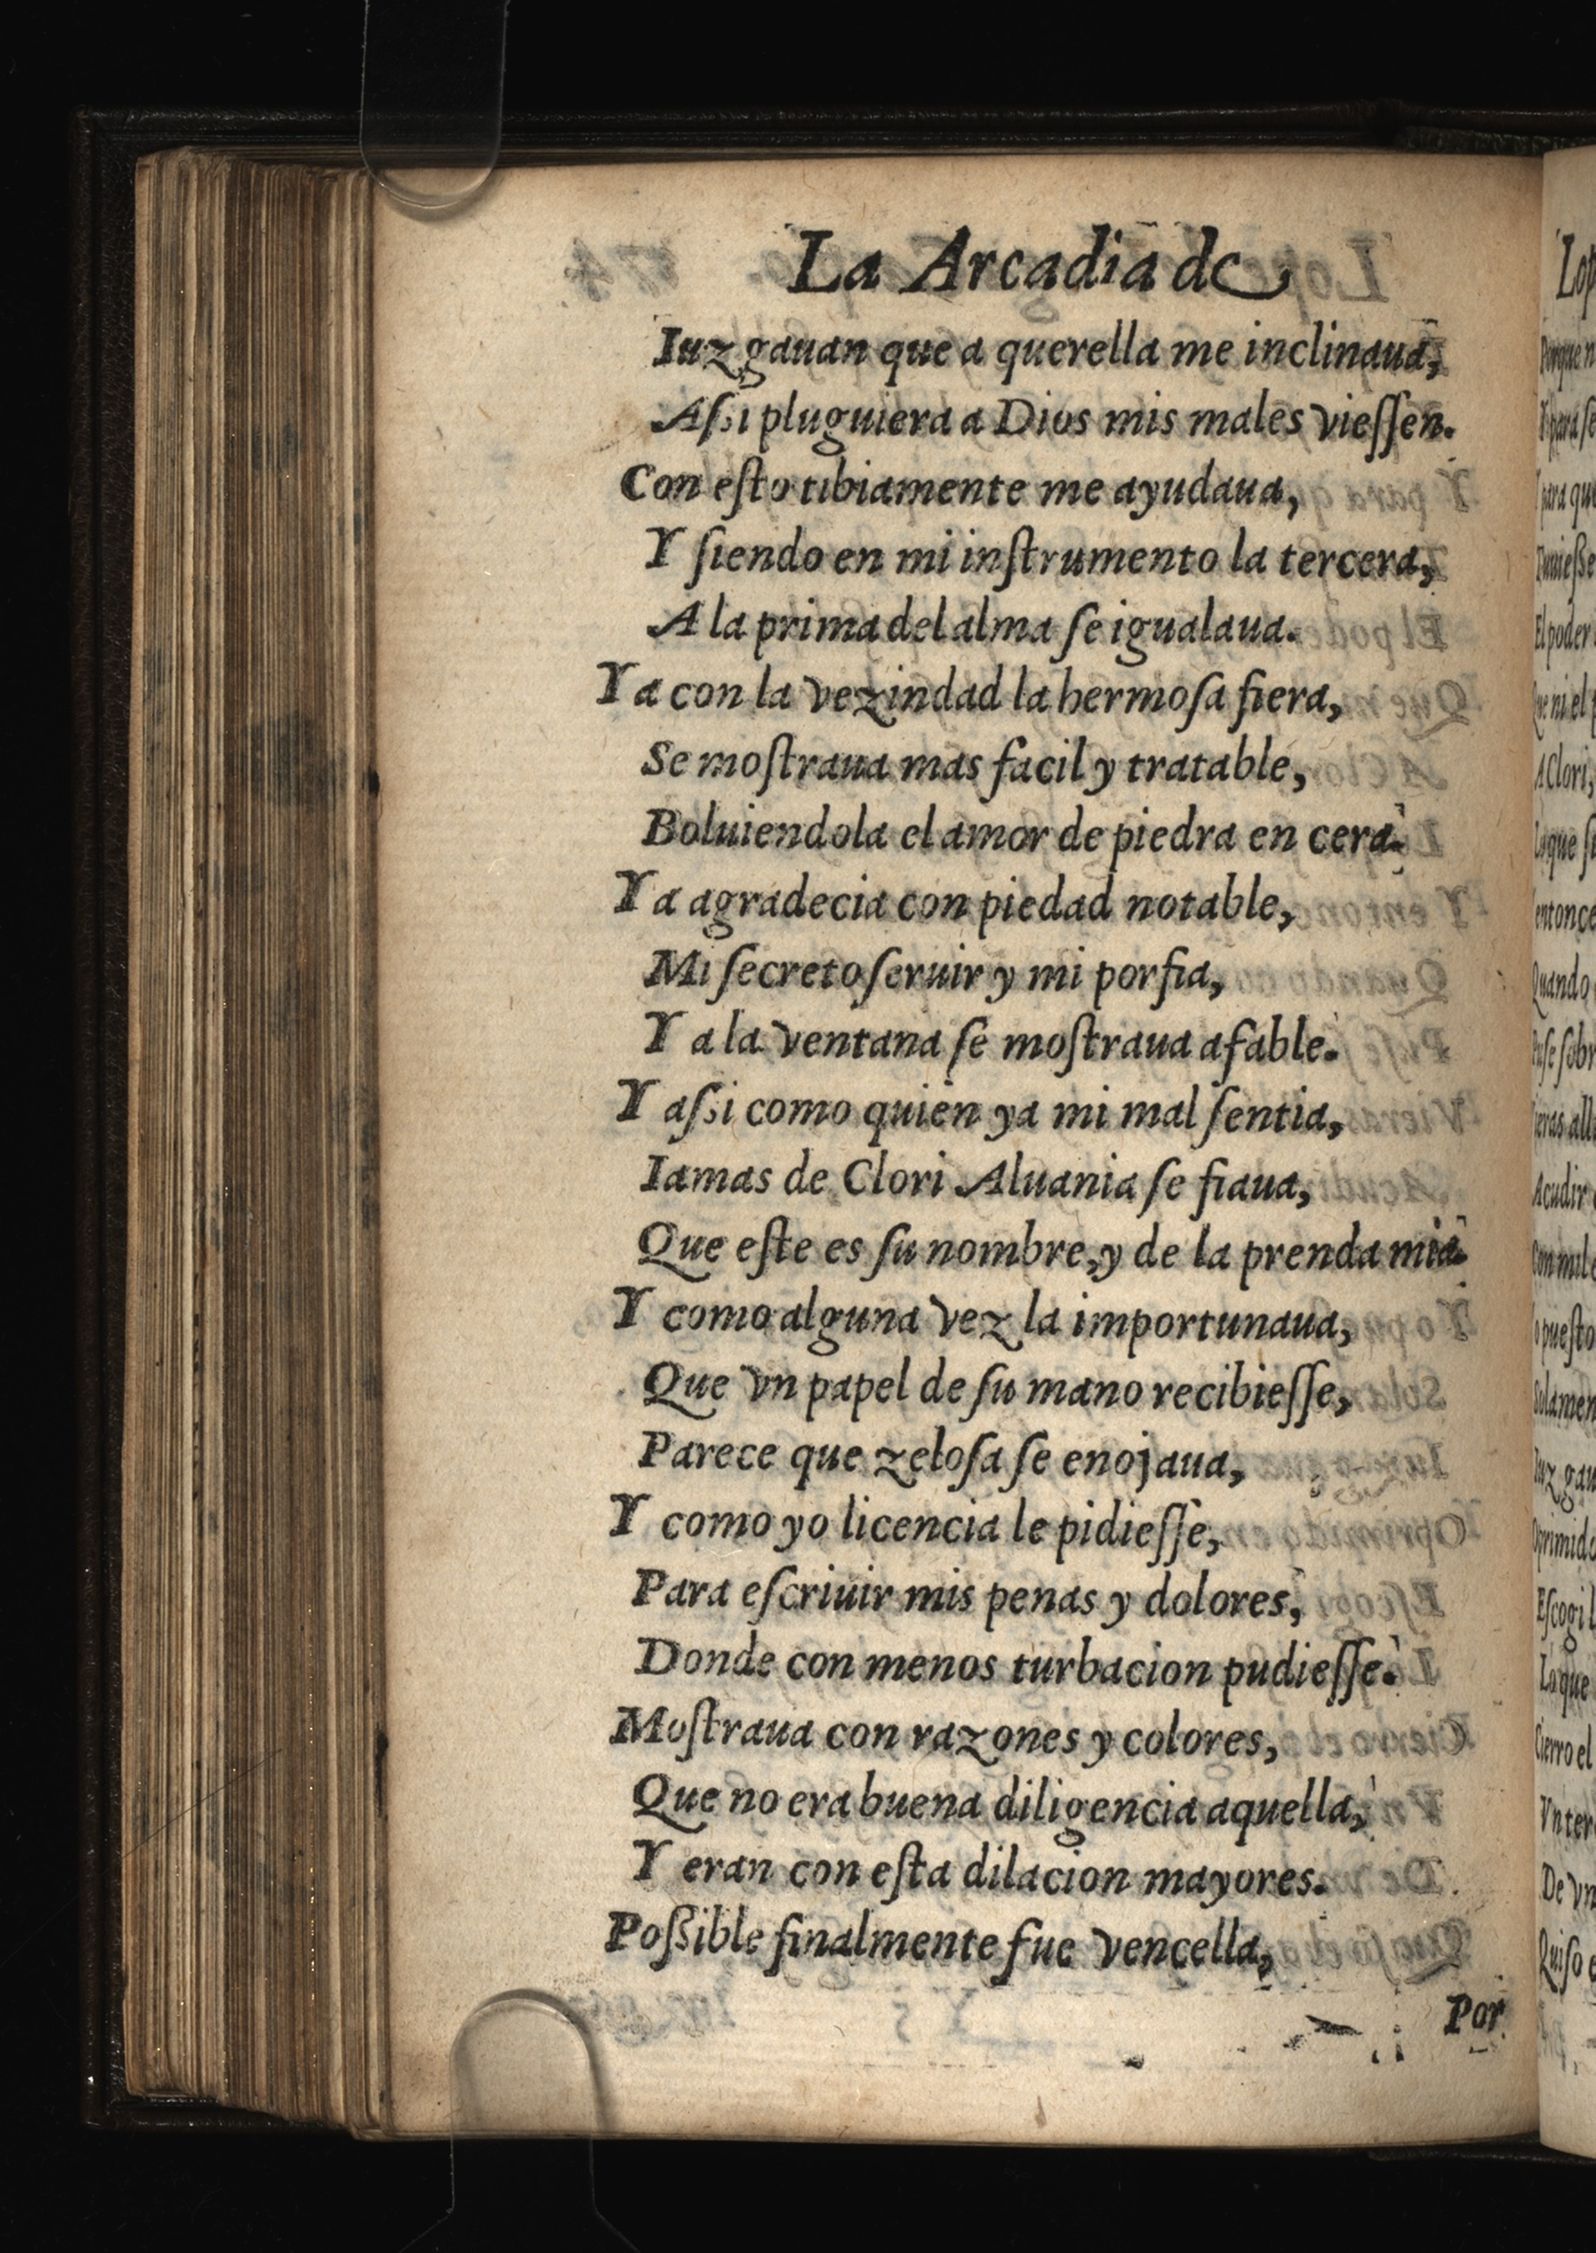 La Arcadia de
Iuzgauan que a querella me inclinaua,
Aſsi pluguiera a Dios mis males vieſſen.
Con eſto tibiamente me ayudaua,
Y ſiendo en mi inſtrumento la tercera,
A la prima del alma ſe igualaua.
Ya con la vezindad la hermoſa fiera,
Se moſtraua mas facil y tratable,
Boluiendola el amor de piedra en cera.
Ya agradecia con piedad notable,
Mi ſecreto ſeruir y mi porfia,
Y a la ventana ſe moſtraua afable.
Y aſsi como quien ya mi mal ſentia,
Iamas de Clori Aluania ſe fiaua,
Que eſte es ſu nombre, y de la prenda mia.
Y como alguna vez la importunaua,
Que vn papel de ſu mano recibieſſe,
Parece que zeloſa ſe enojaua,
Y como yo licencia le pidieſſe,
Para eſcriuir mis penas y dolores,
Donde con menos turbacion pudieſſe.
Moſtraua con razones y colores,
Que no era buena diligencia aquella,
Y eran con eſta dilacion mayores.
Poſsible finalmente fue vencella,
Por